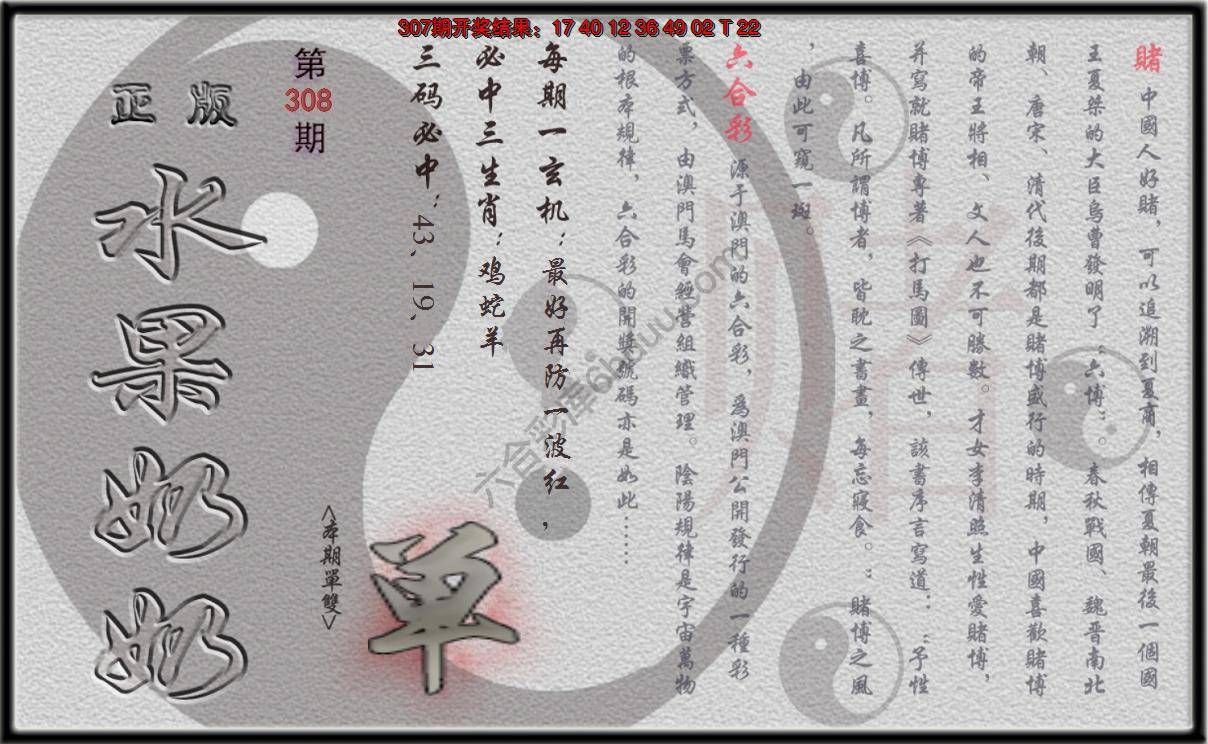 307期开奖结果：17 40 12 36 49 02 T 22
賭 中國人好賭，可以追溯到夏商，相傳夏朝最後一個國
王夏桀的大臣烏曹發明了“六博”。春秋戰國、魏晋南北
朝、唐宋、清代後期都是賭博盛行的時期，中國喜歡賭博
的帝王將相、文人也不可勝數。才女李清照生性愛賭博，
并寫就賭博專著《打馬圖》傳世，該書序言寫道：“予性
喜博。凡所謂博者，皆耽之書畫，每忘寢食。：賭博之風
，由此可窺一斑。
六合彩 源于澳門的六合彩，爲澳門公開發行的一種彩
票方式，由澳門馬會經營組織管理。陰陽規律是宇宙萬物
的根本規律，六合彩的開獎號碼亦是如此……
每期一玄机：最好再防一波红，
必中三生肖：鸡蛇羊
三码必中：43、19、31
第
308
期
正版
水果奶奶
<本期單雙>
单
赌
六合彩谭6hduu.com